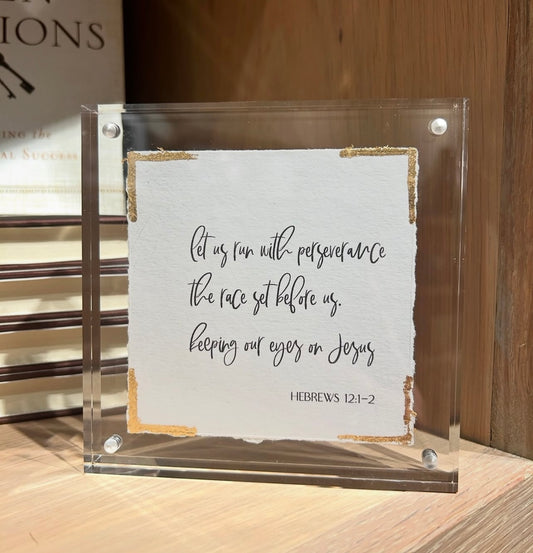 IONS
the
SUCCESS
let us run with perseverance
the race set before us.
keeping our eyes on Jesus
HEBREWS 12:1-2